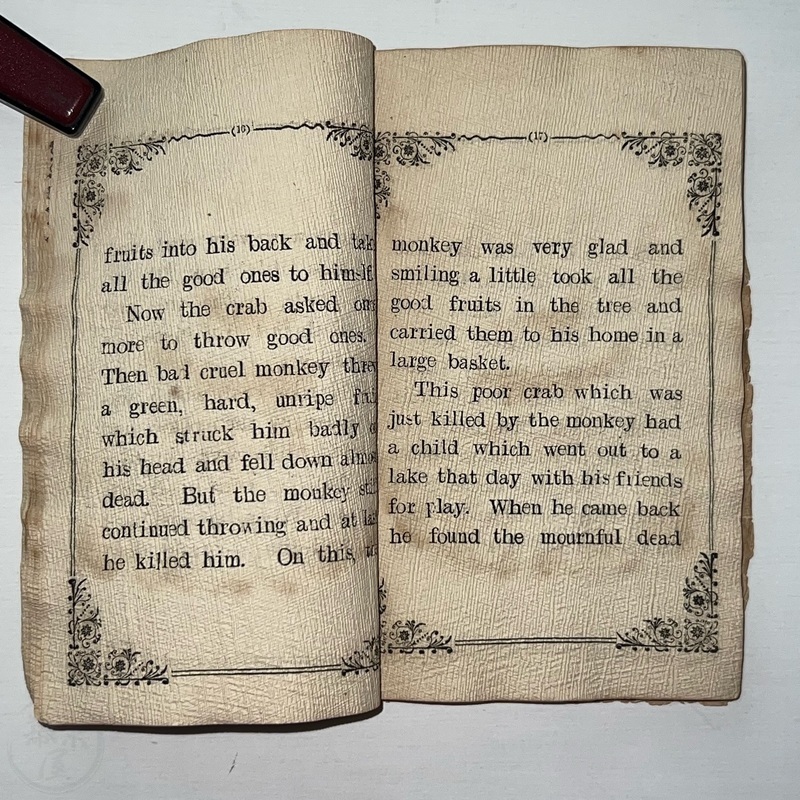 (16)
fruits into his back and
all the good ones to
Now the crab asked
more to throw good ones.
Then bad cruel monkey
a green, hard, unripe
which struck him badly
his head and fell down
dead. But the monkey
continued throwing and at
he killed him. On this,
(17)
monkey was very glad and
smiling a little took all the
good fruits in the tree and
carried them to his home in a
large basket.
This poor crab which was
just killed by the monkey had
a child which went out to a
lake that day with his friends
for play. When he came back
he found the mournful dead